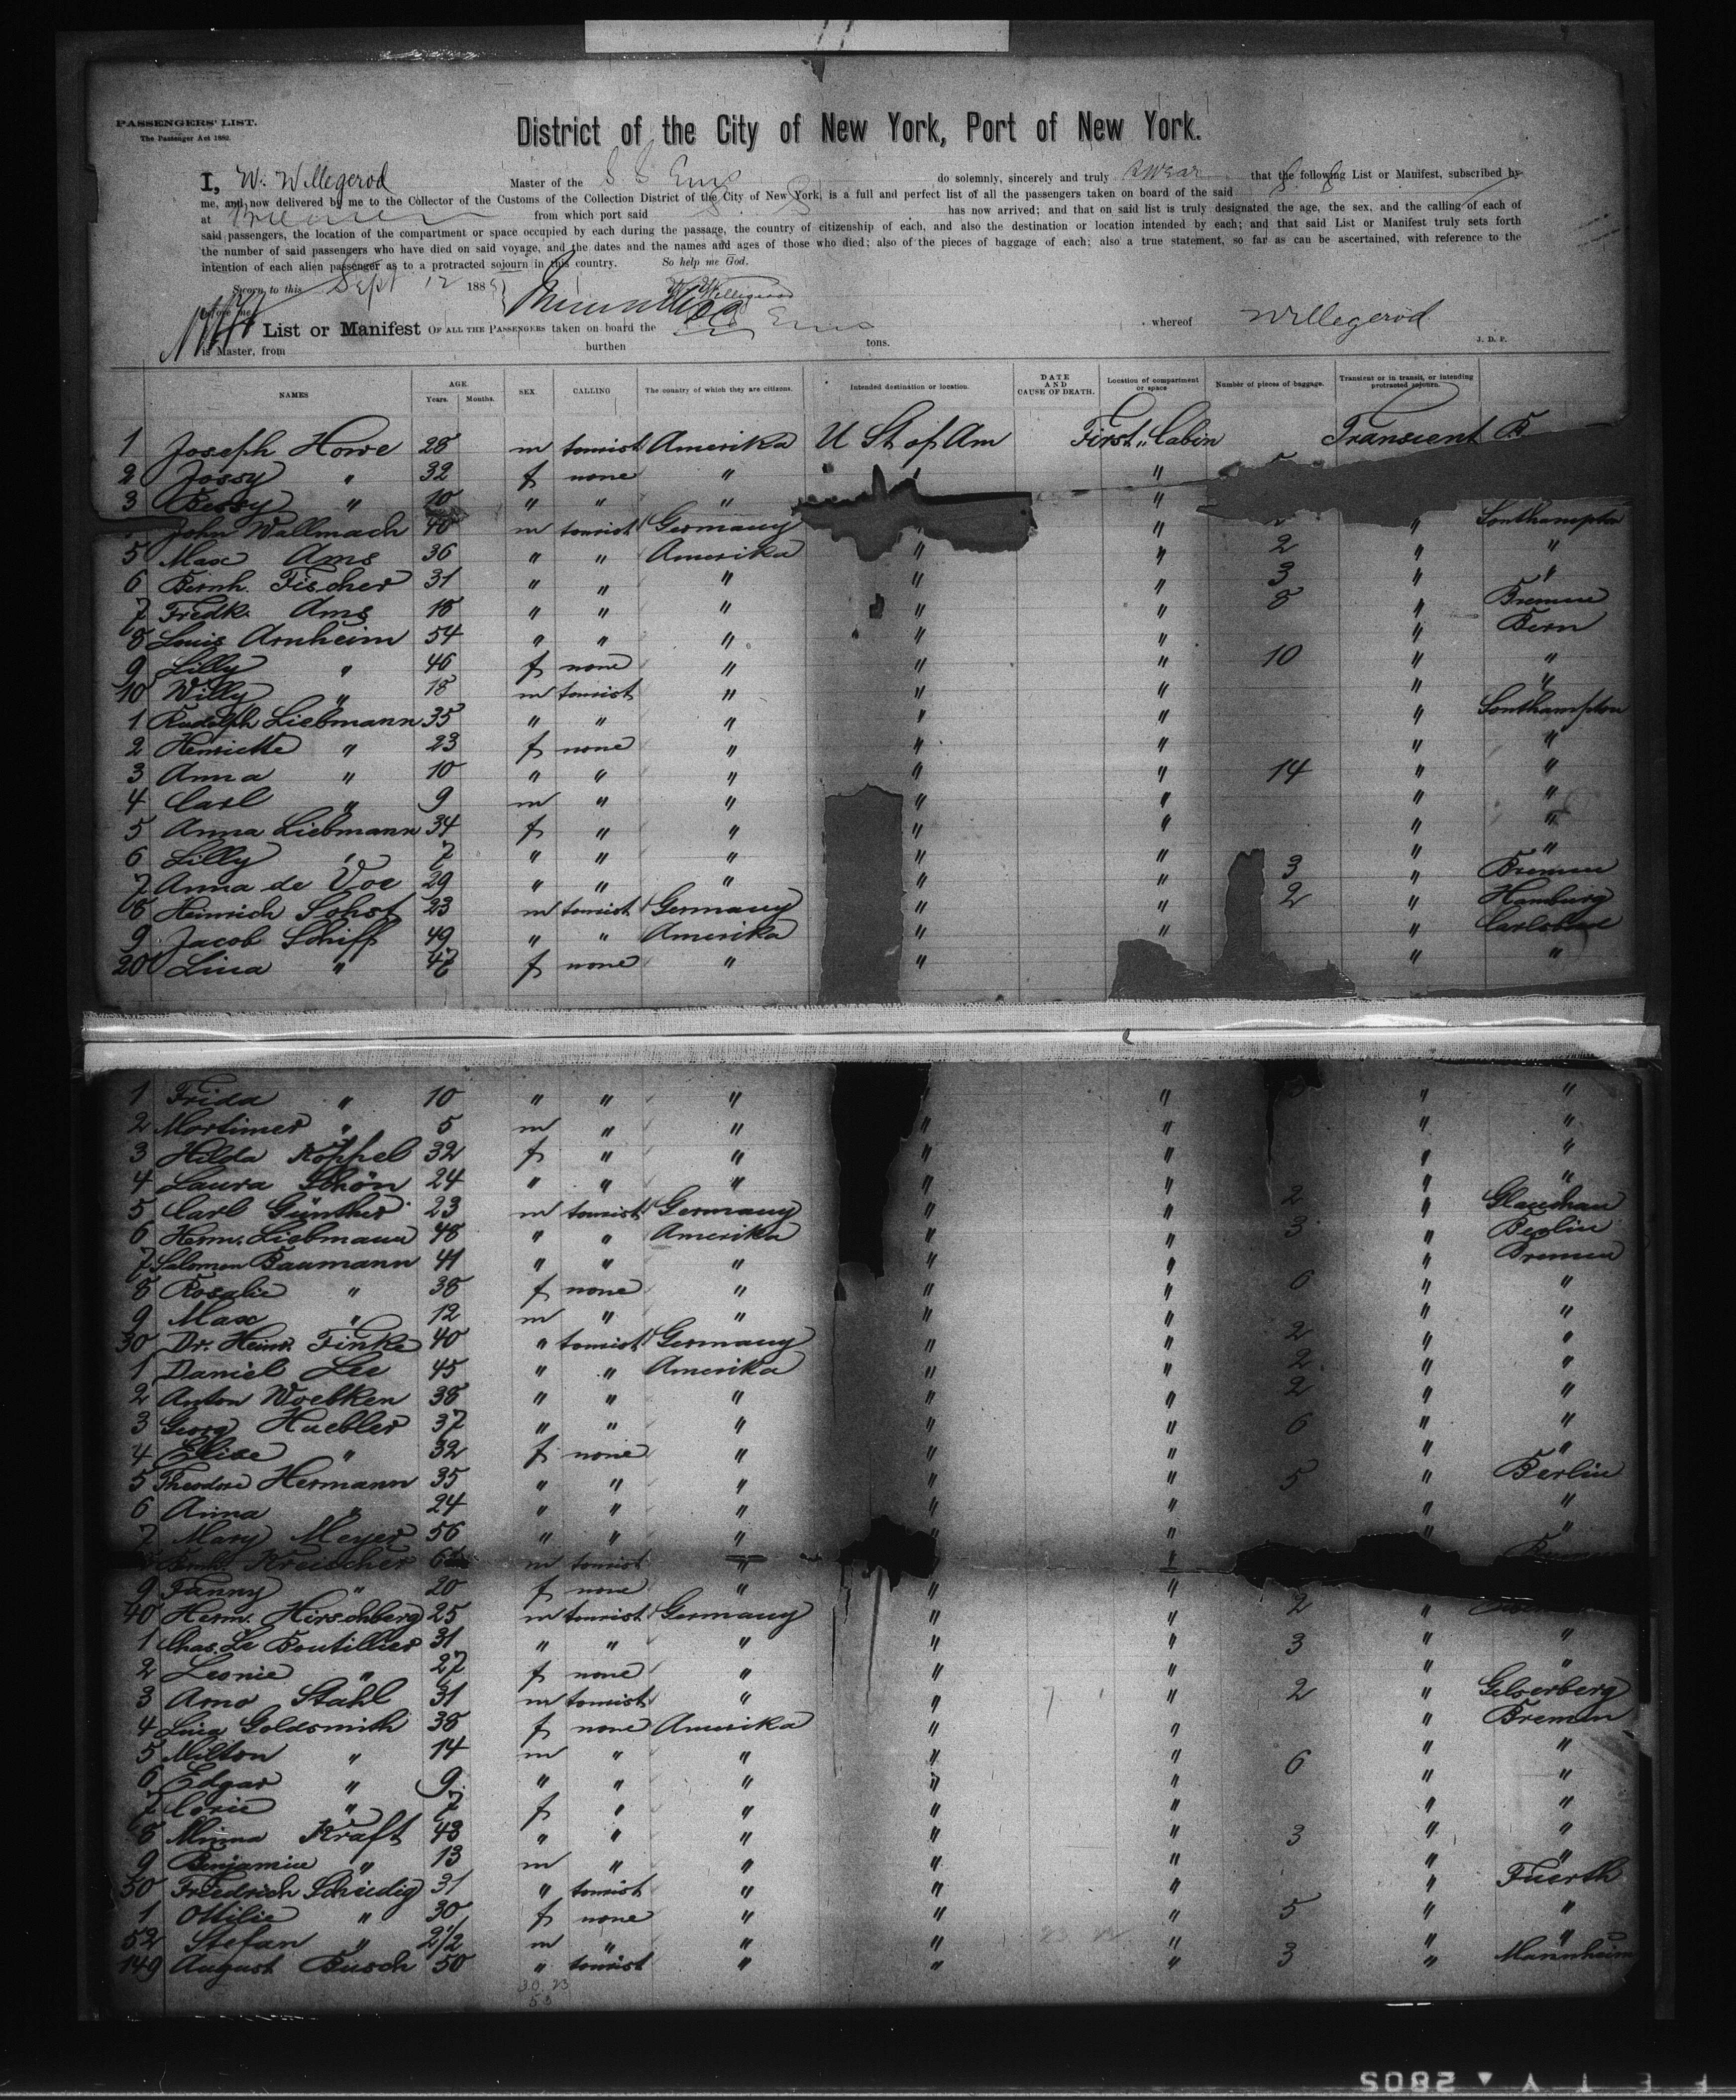 PASSENGERS' LIST.
The Passenger Act 1882.
District of the City of New York, Port of New York.
I, W. Willegerod Master of the S S Ems do solemnly, sincerely and truly swear that the following List or Manifest, subscribed by
me, and now delivered by me to the Collector of the Customs of the Collection District of the City of New York, is a full and perfect list of all the passengers taken on board of the said
at Bremen from which port said has now arrived; and that on said list is truly designated the age, the sex, and the calling of each of
said passengers, the location of the compartment or space occupied by each during the passage, the country of citizenship of each, and also the destination or location intended by each; and that said List or Manifest truly sets forth
the number of said passengers who have died on said voyage, and the dates and the names and ages of those who died; also of the pieces of baggage of each; also a true statement, so far as can be ascertained, with reference to the
intention of each alien passenger as to a protracted sojourn in this country. So help me God.
Sworn to this Sept 12 188
before me W. Willigerod
List or Manifest OF ALL THE PASSENGERS taken on board the SS Ems whereof Willegerod
is Master, from burthen tons. J. D. P.
NAMES AGE. Years. Months. SEX. CALLING The country of which they are citizens. Intended destination or location. DATE AND CAUSE OF DEATH. Location of compartment or space Number of pieces of baggage. Transient or in transit, or intending protracted sojourn.
1 Joseph Howe 28 m tourist Amerika U St of Am First Cabin Transient B
2 Jossy " 32 f none " " "
3 Bessy " 10 " " " "
John Wallmach 40 m tourist Germany " " Southampton
5 Max Ams 36 " " Amerika " " 2 " "
6 Bernh. Fischer 31 " " " " " 3 " "
7 Fredk. Ams 18 " " " " " 8 " Bremen
8 Louis Arnheim 54 " " " " " " Bern
9 Lilly " 46 f none " " " 10 " "
10 Willy " 18 m tourist " " " " "
1 Rudolph Liebmann 35 " " " " " " Southampton
2 Henriette " 23 f none " " " " "
3 Anna " 10 " " " " " 14 " "
4 Carl " 9 m " " " " " "
5 Anna Liebmann 34 f " " " " " "
6 Lilly " 7 " " " " " " "
7 Anna de Voe 29 " " " " " 3 " Bremen
8 Heinrich Sohst 23 m tourist Germany " " 2 " Hamburg
9 Jacob Schiff 49 " " Amerika " " " Carlsbad
20 Lina " 47 f none " " " "
1 Frida " 10 " " " " " " "
2 Mortimer " 5 m " " " " " "
3 Hilda Koppel 32 f " " " " " "
4 Laura Schön 24 " " " " " " "
5 Carl Günther 23 m tourist Germany " " 2 " Glauchau
6 Herm. Liebmann 48 " " Amerika " " 3 " Berlin
7 Salomon Baumann 41 " " " " " " Bremen
8 Rosalie " 38 f none " " " 6 " "
9 Max " 12 m " " " " " "
30 Dr. Heinr. Finke 40 " tourist Germany " " 2 " "
1 Daniel Lee 45 " " Amerika " " 2 " "
2 Anton Woebken 38 " " " " " 2 " "
3 Georg Huebler 37 " " " " " 6 " "
4 Elise " 32 f none " " " " "
5 Theodore Hermann 35 " " " " " 5 " Berlin
6 Anna " 24 " " " " " " "
7 Mary Meyer 56 " " " " " " "
Kreischer m tourist " " "
9 Fanny " 20 f none " " " "
40 Herm. Hirschberg 25 m tourist Germany " " 2 "
1 Chas. Le Boutillier 31 " " " " " 3 " "
2 Leonie " 27 f none " " " " "
3 Arno Stahl 31 m tourist " " " 2 " Gelserberg
4 Lina Goldsmith 38 f none Amerika " " " Bremen
5 Milton " 14 m " " " " " "
6 Edgar " 9 " " " " " 6 " "
7 Corie " 7 f " " " " " "
8 Minna Kraft 43 " " " " " 3 " "
9 Benjamin " 13 m " " " " " "
50 Friedrich Scheidig 31 " tourist " " " " Fuerth
1 Ottilie " 30 f none " " " 5 " "
52 Stefan " 2 1/2 m " " " " " "
149 August Busch 50 " tourist " " " 3 " Mannheim
30 23
53
2805